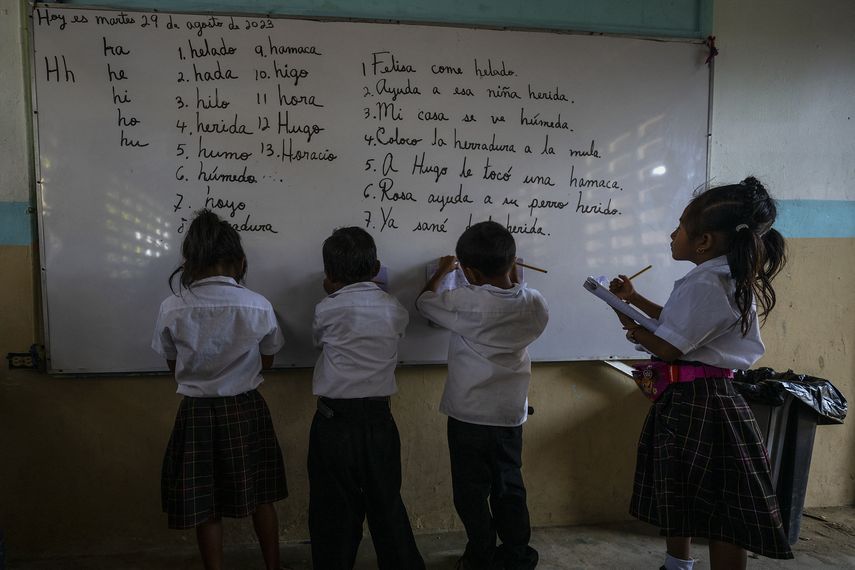 Hoy es martes 29 de agosto de 2023
Hh
ha
he
hi
ho
hu
1. helado
2. hada
3. hilo
4. herida
5. humo
6. húmedo
7. hoyo
9. hamaca
10. higo
11 hora
12 Hugo
13. Horacio
...
1 Felisa come helado.
2. Ayuda a esa niña herida.
3. Mi casa se ve húmeda.
4. Coloco la herradura a la mula
5. A Hugo le tocó una hamaca.
6. Rosa ayuda a su perro herido.
7. Ya sané herida.